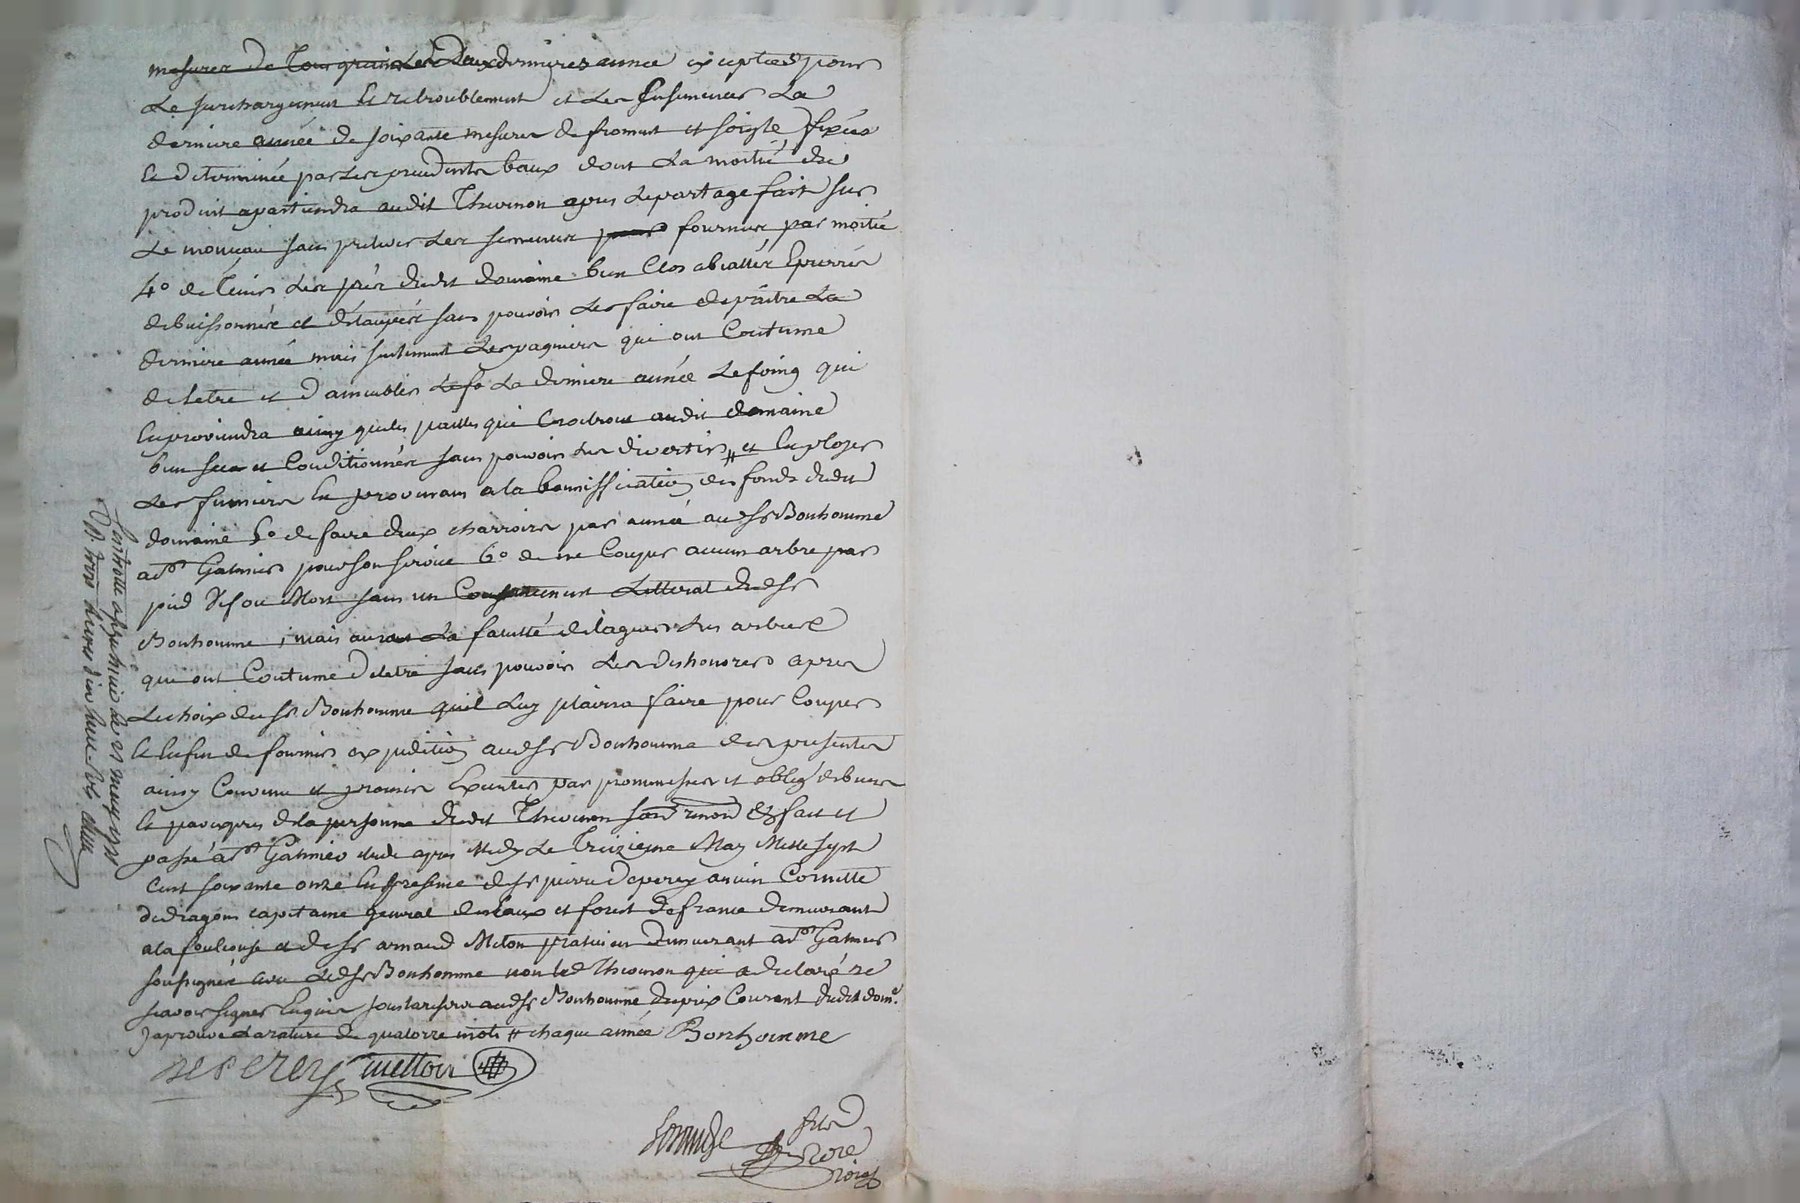 mesures de tous grains les deux dernieres année exceptées pour
le surchargement et redroublement et les ensemences la
derniere année de soixante mesures de froment et soigle fixées
et determinée par les precedents baux dont la moitié du
produit apartiendra audit Thevenon apres le partage fait sur
le monceau sans prelever les semences fournies par moitié
4° de tenir les prés dudit domaine bien clos abialler epierrés
debuissonnés et détaupés sans pouvoir les faire depaitre la
derniere année mais seulement les paquiers qui ont coutume
de letre et d'ameubler la derniere année le foing qui
en proviendra ainsy que les pailles qui croitront audit domaine
bien secs et conditionnés sans pouvoir les divertir # et employer
les fumiers en provenans a la bonnissication des fonds dudit
domaine 5° de faire deux charroirs par année audit Sr Bonhomme
a St Galmier pour son service 6° de ne couper aucun arbre par
pied vif ou mort sans un consentement litteral dudit Sr
Bonhomme, mais aura la faculté delaguer les arbres
qui ont coutume deletre sans pouvoir les deshonorer apres
le choix dudit Sr Bonhomme quil luy plaira faire pour couper
et enfin de fournir expedition audit Sr Bonhomme des presentes
ainsy convenu et promis executer par promesses et oblig. de biens
et par expres de la personne dudit Thevenon &c fait et
passé a St Galmier etude apres midy le treizieme may mille sept
cent soixante onze en presence de Sr pierre Deperey ancien cornette
de dragons capitaine general des eaux et forest de france demeurant
a la fouliouse et de Sr armand Meton praticien demeurant a St Galmier
soussignés avec ledit Sr Bonhomme non led. Thevenon qui a declaré ne
scavoir signer enquis sous la reserve audit Sr Bonhomme du prix courant dudit dome.
Japrouve la rature de quatorze mots # chaque année Bonhomme
Deperey metton